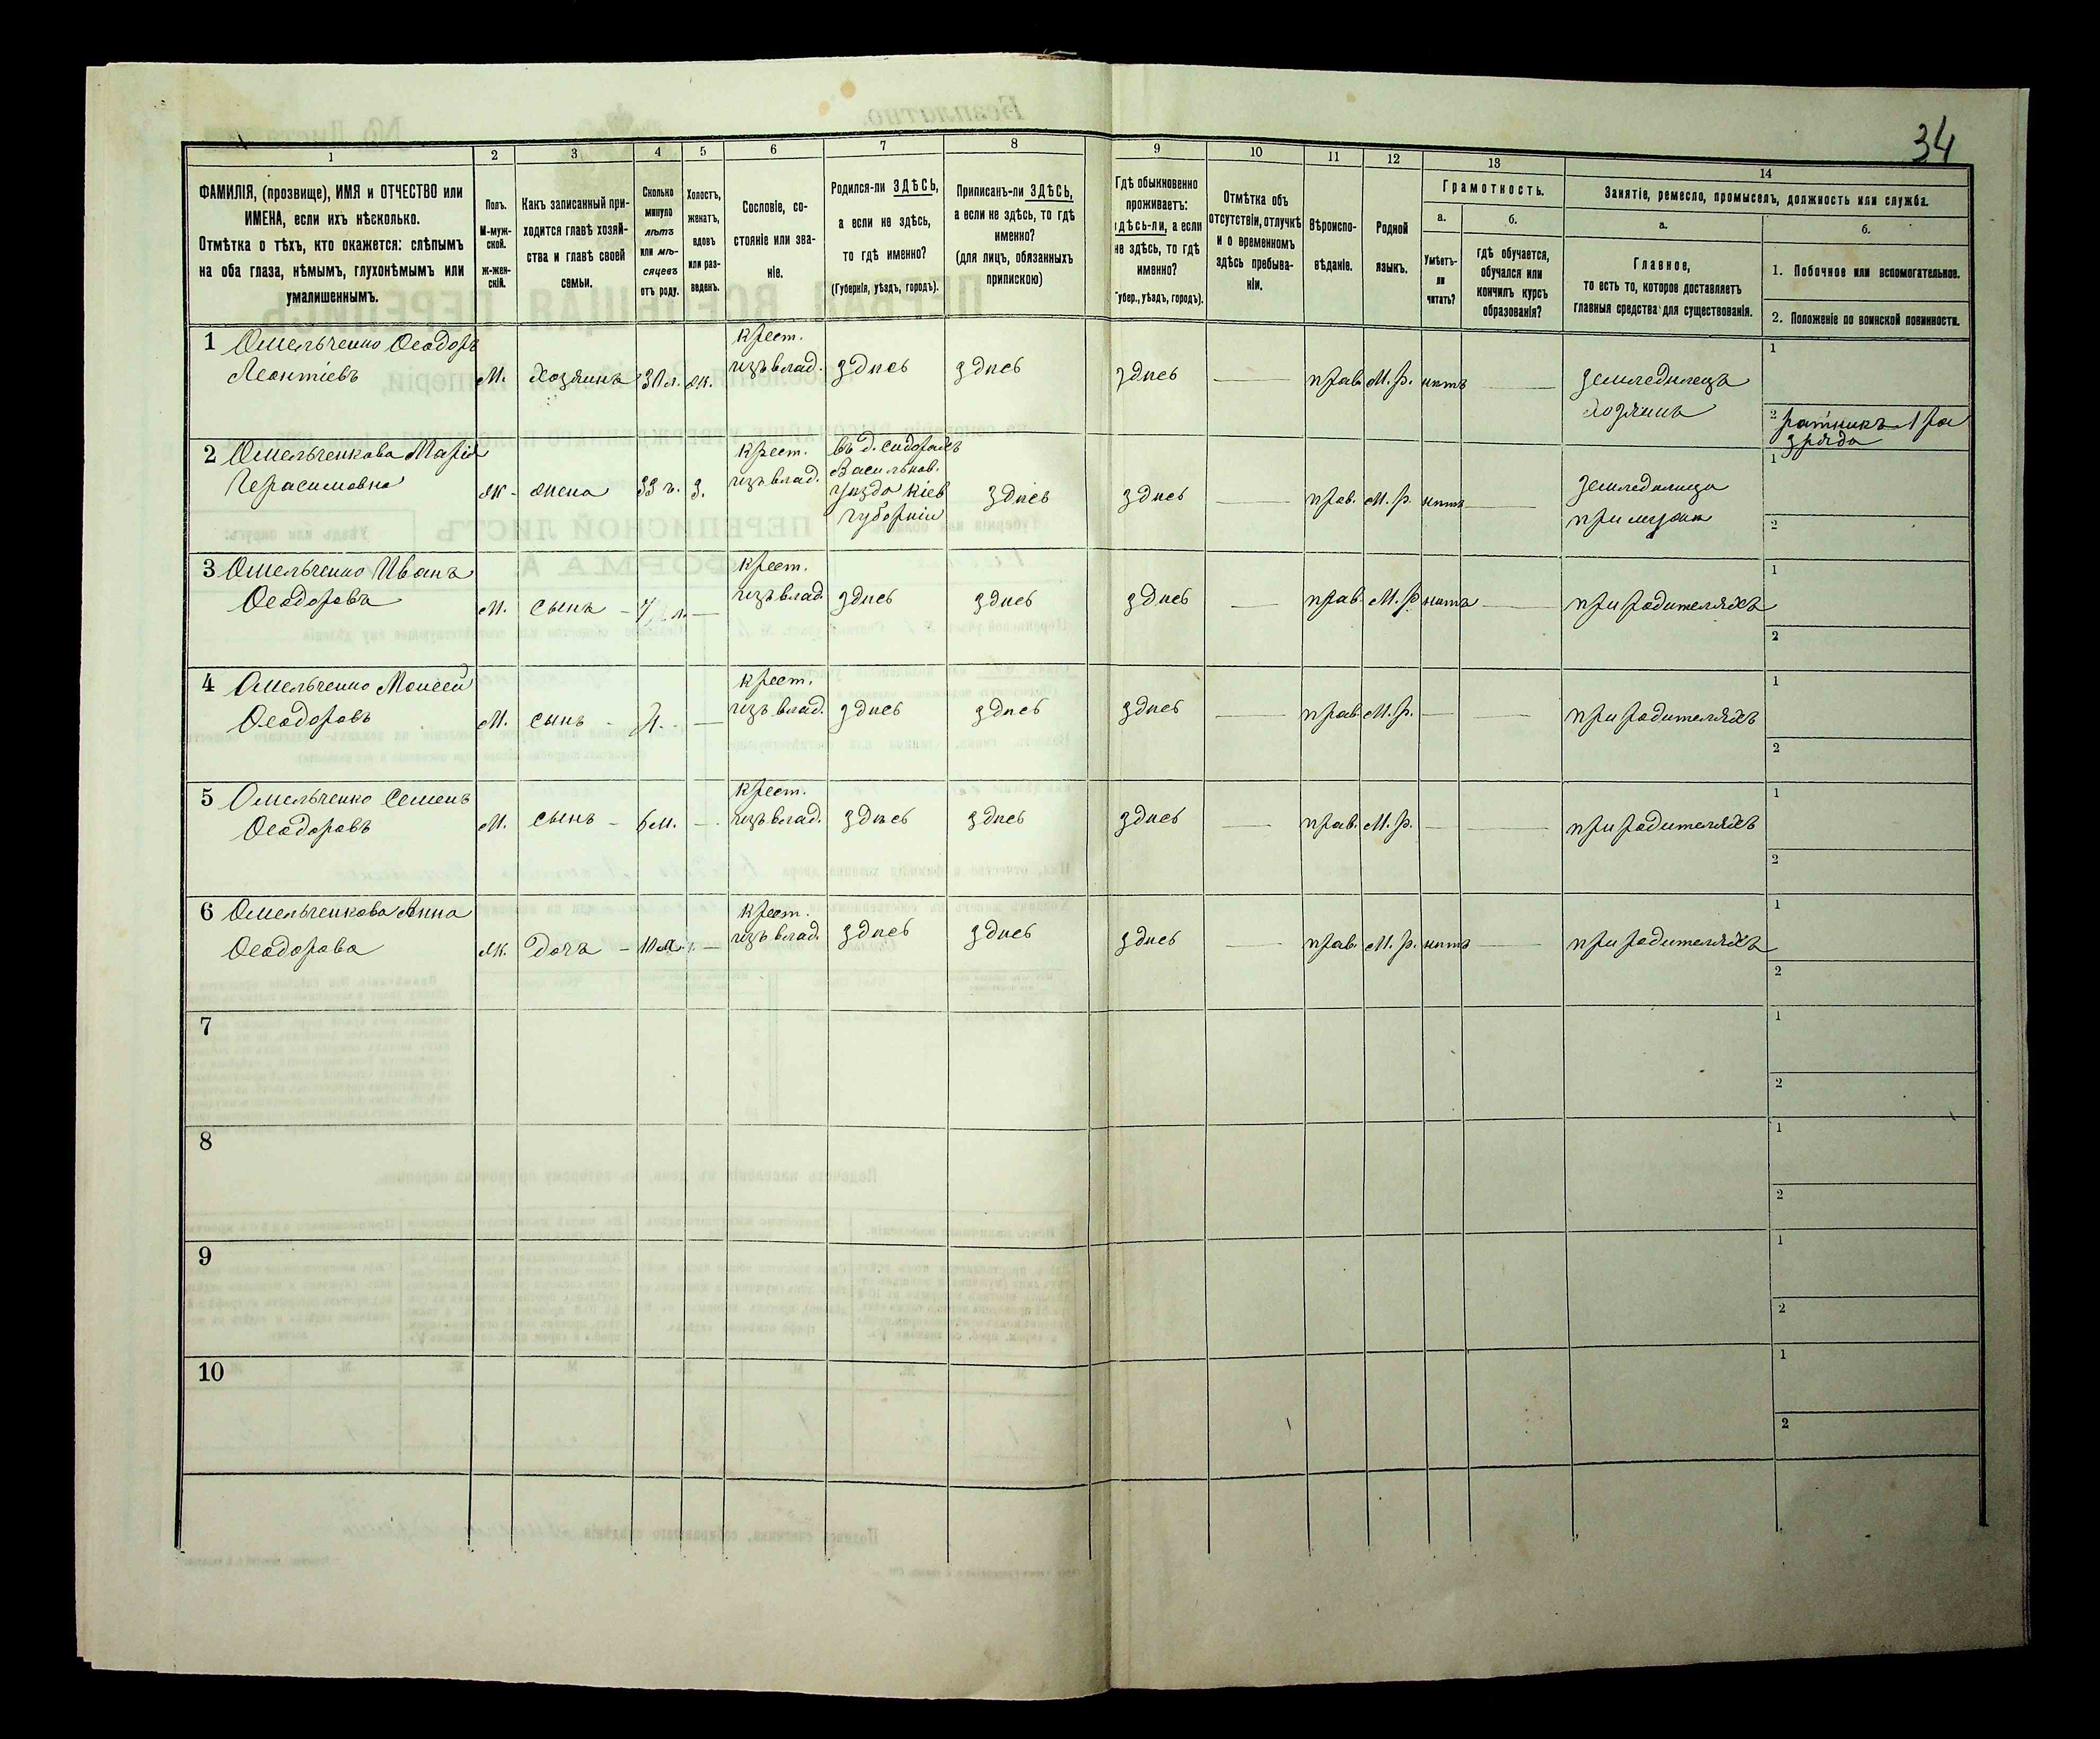 34
1 2 3 4 5 6 7 8 9 10 11 12 13 14
ФАМИЛІЯ, (прозвище), ИМЯ и ОТЧЕСТВО или
ИМЕНА, если ихъ нѣсколько.
Отмѣтка о тѣхъ, кто окажется: слѣпымъ
на оба глаза, нѣмымъ, глухонѣмымъ или
умалишеннымъ.
Полъ.
М-муж-
ской.
ж-жен-
скій.
Какъ записанный при-
ходится главѣ хозяй-
ства и главѣ своей
семьи.
Сколько
минуло
лѣтъ
или мѣ-
сяцевъ
отъ роду.
Холостъ,
женатъ,
вдовъ
или раз-
веденъ.
Сословіе, со-
стояніе или зва-
ніе.
Родился-ли ЗДѢСЬ,
а если не здѣсь,
то гдѣ именно?
(Губернія, уѣздъ, городъ).
Приписанъ-ли ЗДѢСЬ,
а если не здѣсь, то гдѣ
именно?
(для лицъ, обязанныхъ
припискою)
Гдѣ обыкновенно
проживаетъ:
здѣсь-ли, а если
не здѣсь, то гдѣ
именно?
Губер., уѣздъ, городъ).
Отмѣтка объ
отсутствіи, отлучкѣ
и о временномъ
здѣсь пребыва-
ніи.
Вѣроиспо-
вѣданіе.
Родной
языкъ.
Грамотность.
а.
Умѣетъ-
ли
читать?
б.
гдѣ обучается,
обучался или
кончилъ курсъ
образованія?
Занятіе, ремесло, промыселъ, должность или служба.
а.
Главное,
то есть то, которое доставляетъ
главныя средства для существованія.
б.
1. Побочное или вспомогательное.
2. Положеніе по воинской повинности.
1 Омельченко Ѳеодоръ
Леонтіевъ
М. Хозяинъ ж.
крест.
изъ влад.
здѣсь здѣсь здѣсь — прав. М. р. нѣтъ —
земледѣлецъ
хозяинъ
1
2 ратникъ 1 ра
зряда
2 Омельченкова Марія
Герасимовна
ж. жена 33 г. з.
крест.
изъ влад.
въ д. Сидорахъ
Васильков.
уѣзда Кіев
губерніи
здѣсь здѣсь — прав. М. р. нѣтъ —
земледѣлица
при мужѣ
1
2
3 Омельченко Иванъ
Ѳеодоровъ
М. сынъ — 7 л. —
крест.
изъ влад.
здѣсь здѣсь здѣсь — прав. М. р. нѣтъ — при родителяхъ
1
2
4 Омельченко Моисей
Ѳеодоровъ
М. сынъ — —
крест.
изъ влад.
здѣсь здѣсь здѣсь — прав. М. р. — — при родителяхъ
1
2
5 Омельченко Семенъ
Ѳеодоровъ
М. сынъ — 6 м. —
крест.
изъ влад.
здѣсь здѣсь здѣсь — прав. М. р. — — при родителяхъ
1
2
6 Омельченкова Анна
Ѳеодорова
ж. дочь — 10 л. —
крест.
изъ влад.
здѣсь здѣсь здѣсь — прав. М. р. нѣтъ — при родителяхъ
1
2
7
1
2
8
1
2
9
1
2
10
1
2